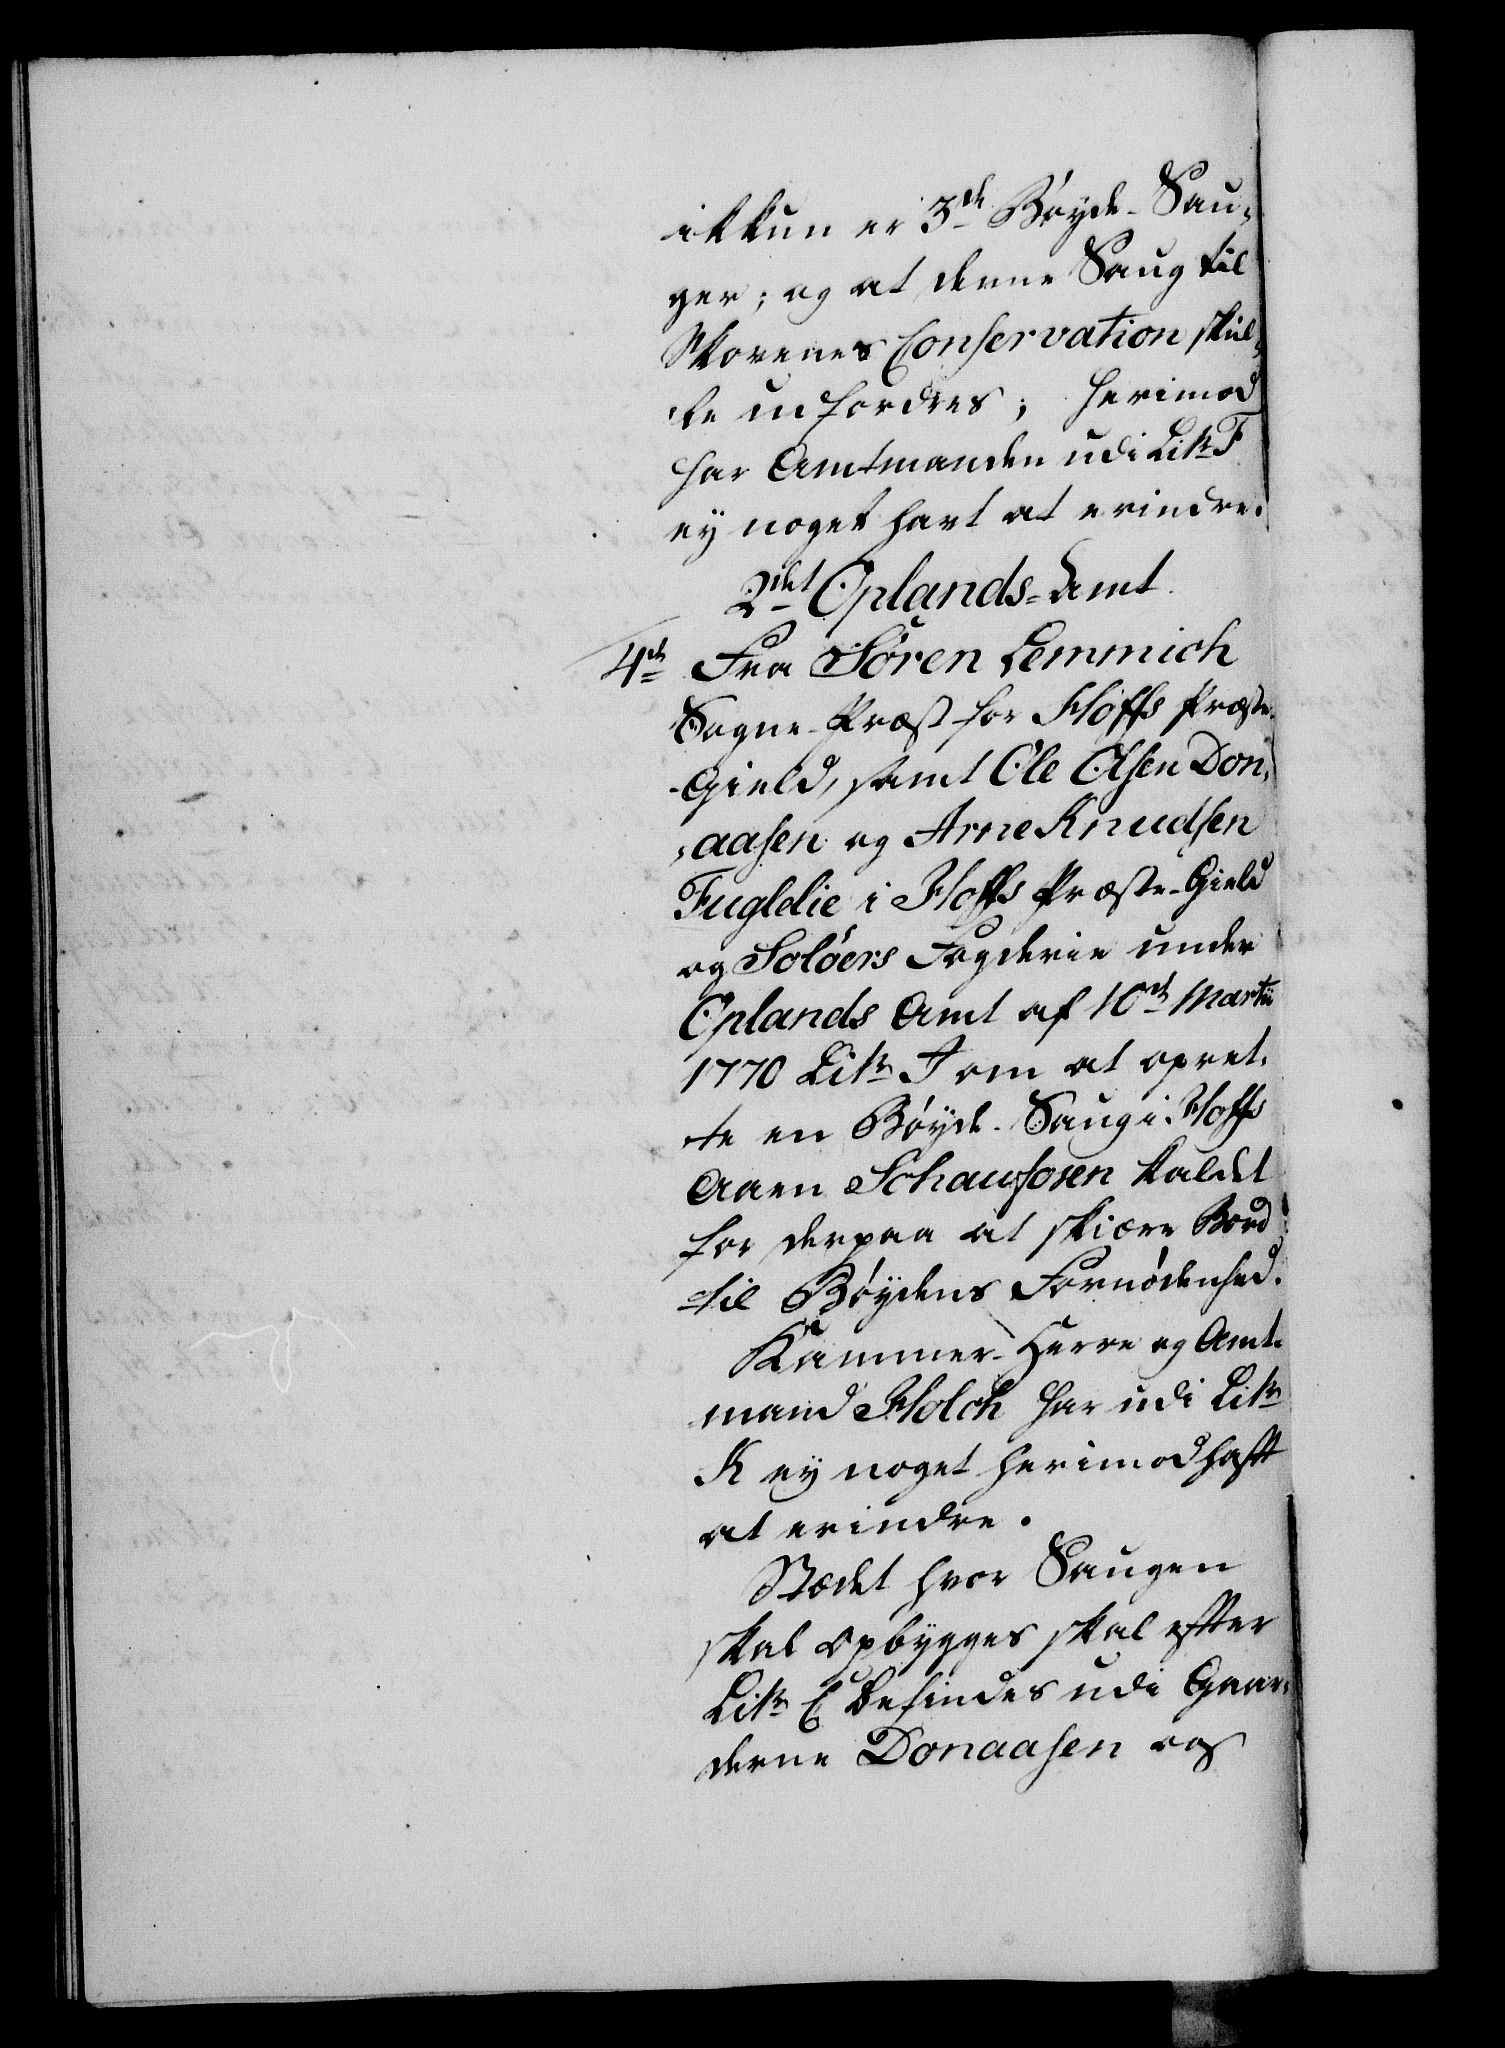 ikkun er 3de Böyde-Sau-
ger; og at denne Saug til
Skovenes Conservation skul-
de udfordres; herimod
har Amtmanden udi Litr F
ey noget havt at erindre.
2det Oplands-Amt.
4de Fra Sören Lemmich
Sogne-Præst for Hoffs Præste-
Gield, samt Ole Olsen Don-
aasen og Arne Knudsen
Fuglelie i Hoffs Præste-Gield
og Solöers Fogderie under
Oplands Amt af 10de Martii
1770 Litr J om at opret-
te en Böyde-Saug i Hoffs
Aaen Schausfosen kaldet
for derpaa at skiære Bord
til Böydens Fornödenhed.
Kammer-Herre og Amt-
mand Holch har udi Litr
K ey noget herimod hafft
at erindre.
Stædet hvor Saugen
skal opbygges skal efter
Litr E befindes udi Gaar-
derne Donaasen og